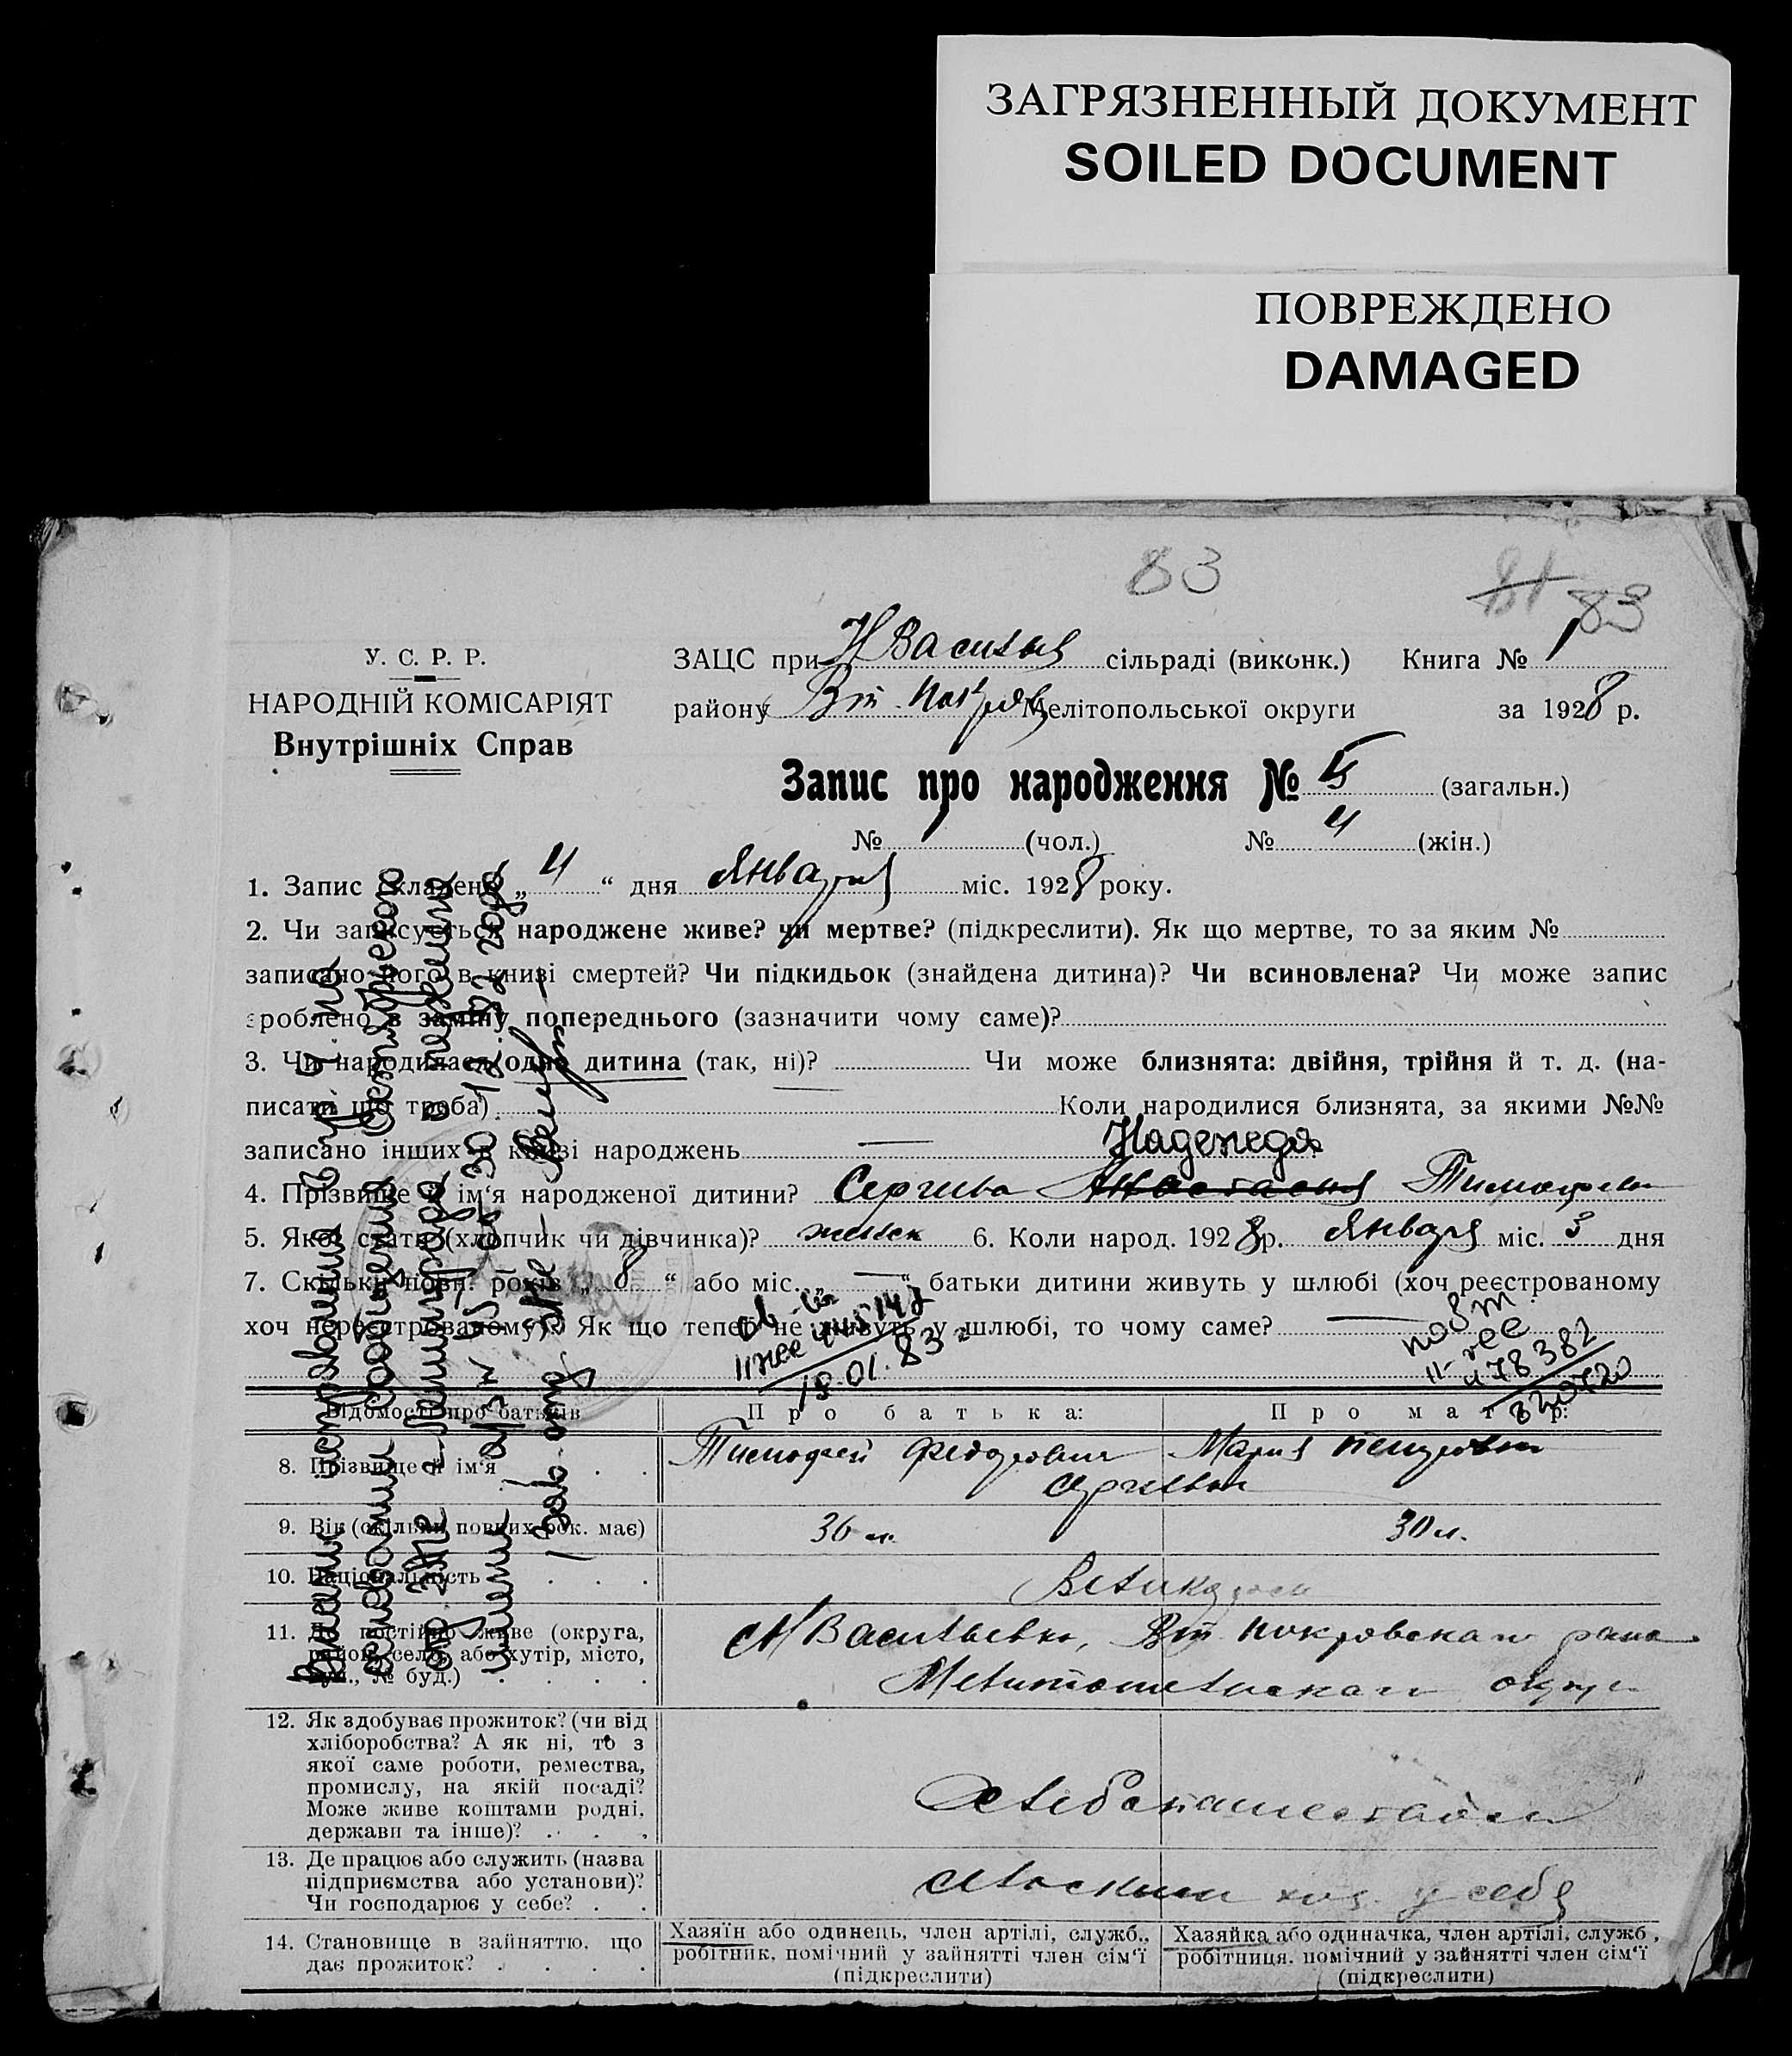 ЗАГРЯЗНЕННЫЙ ДОКУМЕНТ
SOILED DOCUMENT
ПОВРЕЖДЕНО
DAMAGED
83
81 83
У. С. Р. Р.
НАРОДНІЙ КОМІСАРІЯТ
Внутрішніх Справ
ЗАЦС при Н Василь сільраді (виконк.) Книга № 1
району Вт. Покров Мелітопольської округи за 1928 р.
Запис про народження № 5 (загальн.)
№ (чол.) № 4 (жін.)
1. Запис складено „ 4 “ дня Января міс. 1928 року.
2. Чи записується народжене живе? чи мертве? (підкреслити). Як що мертве, то за яким №
записано його в книзі смертей? Чи підкидьок (знайдена дитина)? Чи всиновлена? Чи може запис
зроблено в заміну попереднього (зазначити чому саме)?
3. Чи народилася одна дитина (так, ні)? Чи може близнята: двійня, трійня й т. д. (на-
писати що треба) Коли народилися близнята, за якими №№
записано інших в книзі народжень —
Надежда
4. Прізвище й ім‘я народженої дитини? Сергиева Анастасия Тимофеев
5. Якої стати (хлопчик чи дівчинка)? женск 6. Коли народ. 1928 р. Января міс. 3 дня
7. Скільки повн. років „ 8 “ або міс. „ — “ батьки дитини живуть у шлюбі (хоч реєстрованому
хоч нереєстрованому)? Як що тепер не живуть у шлюбі, то чому саме? —
445147
19.01.83 г
повт.
478382
Відомості про батьків Про батька: Про матір:
8. Прізвище й ім‘я Тимофей Федорович Мария Петровна
Сергиевы
9. Вік (скільки повних рок. має) 36 л. 30 л.
10. Національність Великорос
11. Де постійно живе (округа, район, село, або хутір, місто, вул., № буд.) Н Васильевка, Вт. Покровского райо
Мелитопольского округ
12. Як здобуває прожиток? (чи від
хліборобства? А як ні, то з
якої саме роботи, ремества,
промислу, на якій посаді?
Може живе коштами родні,
держави та інше)?
Хлебопашеством
13. Де працює або служить (назва
підприємства або установи)?
Чи господарює у себе?
сельским хоз. у себя
14. Становище в зайняттю, що
дає прожиток?
Хазяїн або одинець, член артілі, служб.,
робітник, помічний у зайнятті член сім‘ї
(підкреслити)
Хазяйка або одиначка, член артілі, служб.,
робітниця, помічний у зайнятті член сім‘ї
(підкреслити)
Внесены исправления в гр. 4 на
основании сообщения Октябрьского